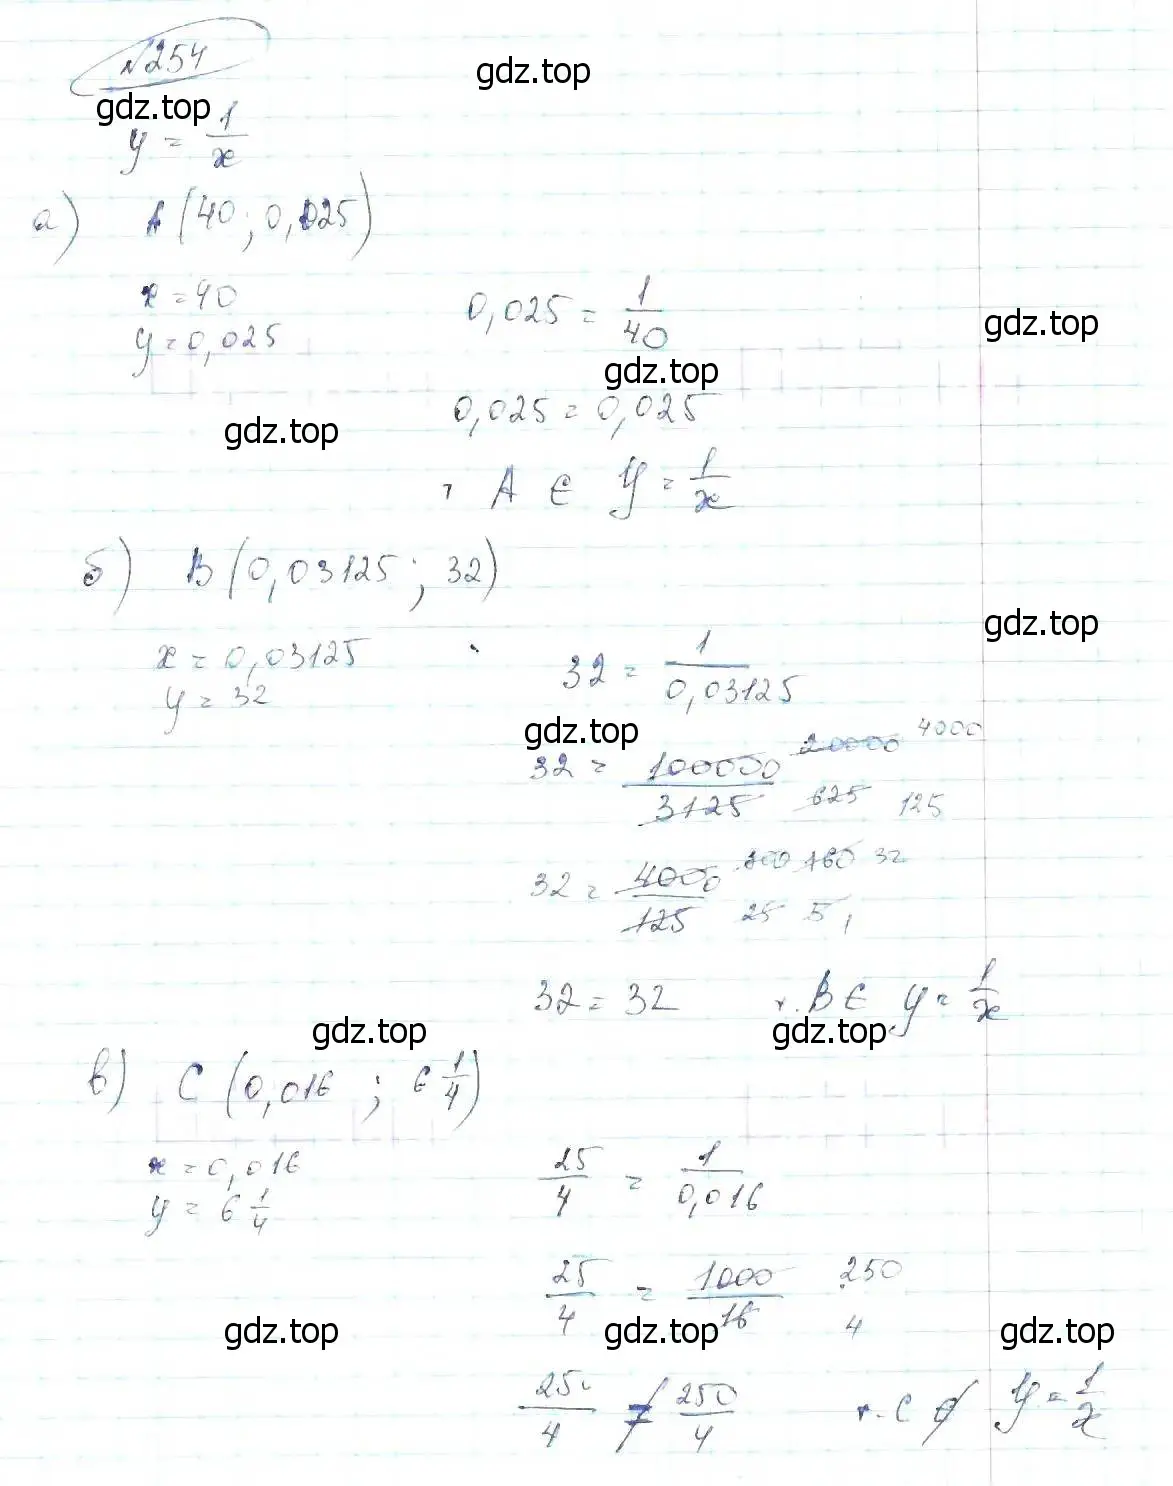 №254
gdz.top
gdz.top
y = 1/x
а) A(40; 0,025)
x = 40
y = 0,025
0,025 = 1/40
gdz.top
gdz.top
0,025 = 0,025
gdz.top
т A ∈ y = 1/x
б) B(0,03125; 32)
gdz.top
x = 0,03125
y = 32
32 = 1/0,03125
gdz.top
32 = 100000/3125 20000/625 4000/125
32 = 4000/125 800/25 160/5 32/1
32 = 32 т. B ∈ y = 1/x
gdz.top
gdz.top
в) C(0,016; 6 1/4)
x = 0,016
y = 6 1/4
25/4 = 1/0,016
25/4 = 1000/16 250/4
gdz.top
gdz.top
gdz.top
25/4 ≠ 250/4 т. C ∉ y = 1/x